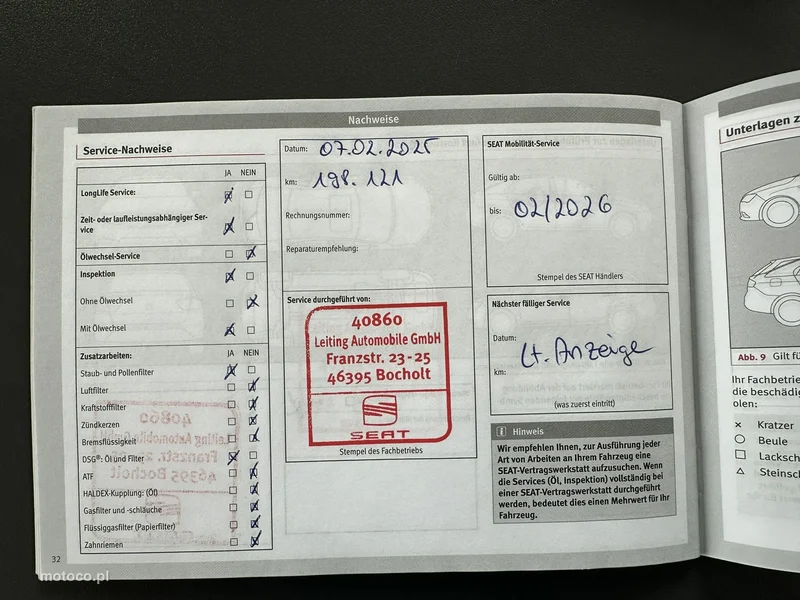 Nachweise
Service-Nachweise
JA NEIN
LongLife Service:
Zeit- oder laufleistungsabhängiger Ser-
vice
Ölwechsel-Service
Inspektion
Ohne Ölwechsel
Mit Ölwechsel
Zusatzarbeiten: JA NEIN
Staub- und Pollenfilter
Luftfilter
Kraftstofffilter
Zündkerzen
Bremsflüssigkeit
DSG®: Öl und Filter
ATF
HALDEX-Kupplung: (Öl)
Gasfilter und -schläuche
Flüssiggasfilter (Papierfilter)
Zahnriemen
32
Datum: 07.02.2025
km: 198.121
Rechnungsnummer:
Reparaturempfehlung:
Service durchgeführt von:
40860
Leiting Automobile GmbH
Franzstr. 23-25
46395 Bocholt
SEAT
Stempel des Fachbetriebs
SEAT Mobilität-Service
Gültig ab:
bis: 02/2026
Stempel des SEAT Händlers
Nächster fälliger Service
Datum:
lt. Anzeige
km:
(was zuerst eintritt)
i Hinweis
Wir empfehlen Ihnen, zur Ausführung jeder
Art von Arbeiten an Ihrem Fahrzeug eine
SEAT-Vertragswerkstatt aufzusuchen. Wenn
die Services (Öl, Inspektion) vollständig bei
einer SEAT-Vertragswerkstatt durchgeführt
werden, bedeutet dies einen Mehrwert für Ihr
Fahrzeug.
Unterlagen z
Abb. 9 Gilt fü
Ihr Fachbetrie
die beschädig
olen:
× Kratzer
Beule
Lacksch
Steinsc
motoco.pl